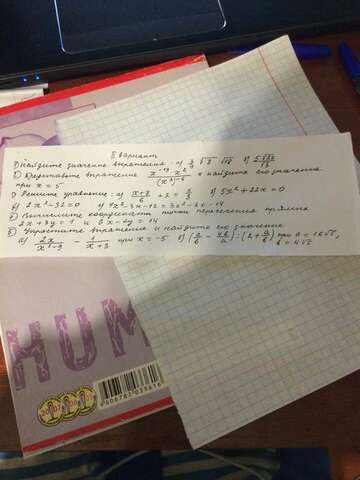 II вариант
1) Найдите значение выражения: а) 3/4 √2 · √18 б) 5√32/√8
2) Представьте выражение x^-13 · x^2 / (x^3)^-5 и найдите его значение
при x = 5
3) Решите уравнение: а) x+2/6 + 2 = 2/3 б) 5x² + 22x = 0
в) 2x² - 32 = 0 г) 4x² - 3x - 12 = 3x² - 4x - 14
4) Вычислите координаты точки пересечения прямых
2x + 3y = 1 и 3x - 4y = 14
5) Упростите выражение и найдите его значение
а) 2x/x²-9 - 1/x+3 при x = -5
HUM
4606782033616